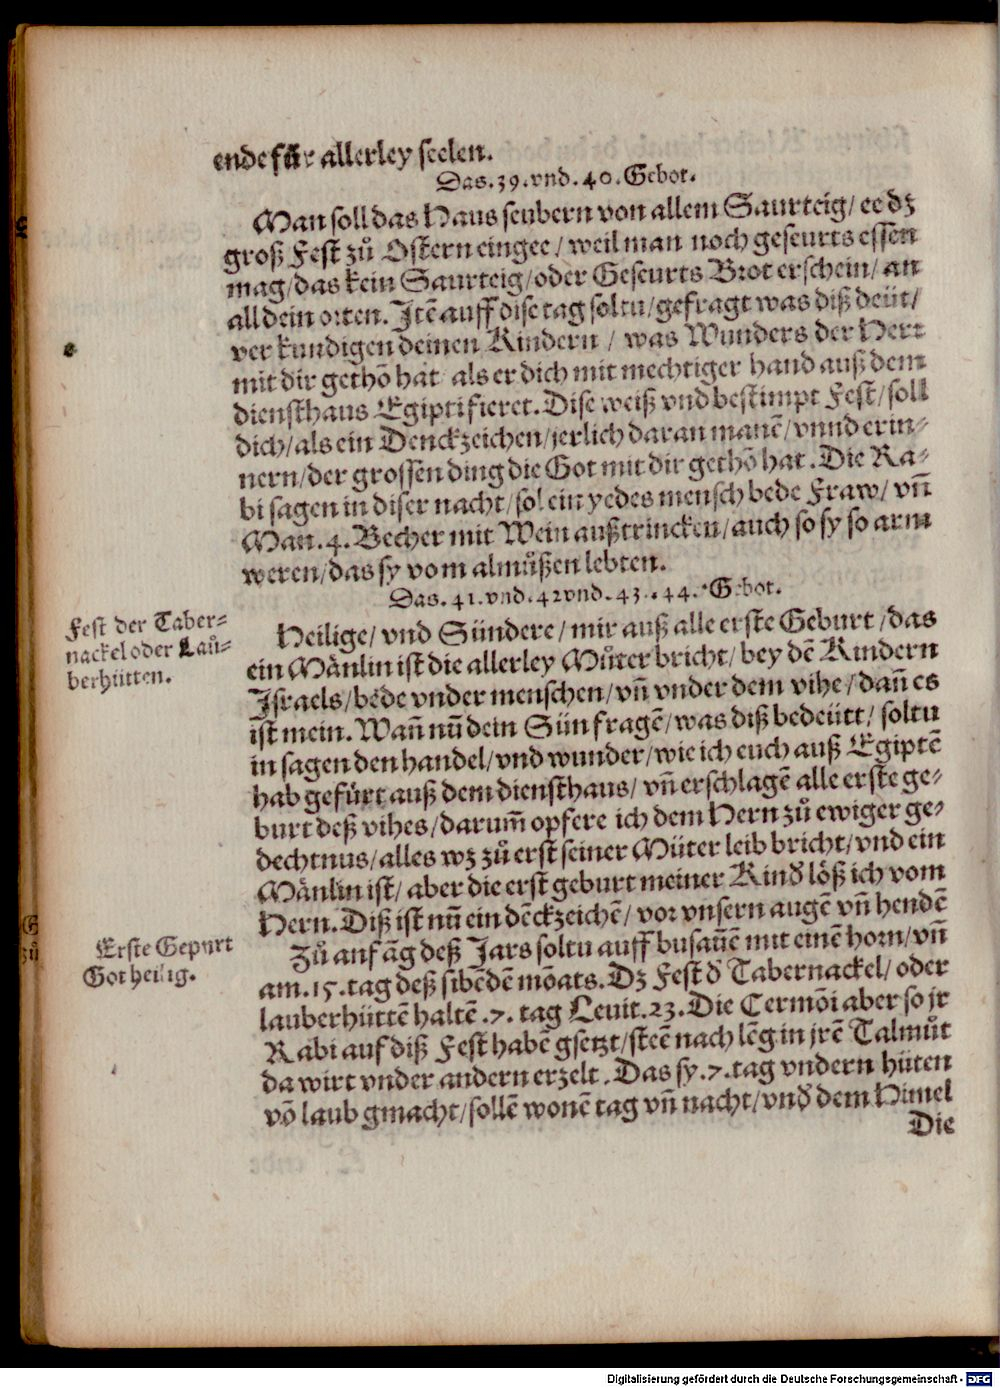 ende für allerley seelen.
Das.39.vnd.40.Gebot.
Man soll das Haus seubern von allem Saurteig/ ee dz
groß Fest zů Ostern eingee/ weil man noch geseurts essen
mag/das kein Saurteig/oder Geseurts Brot erschein/ an
all dein orten. Jtē auff dise tag soltu/gefragt was diß deüt/
ver kundigen deinen Kindern / was Wunders der Herr
mit dir gethō hat als er dich mit mechtiger hand auß dem
diensthaus Egipti fieret. Dise weiß vnd bestimpt Fest/soll
dich/als ein Denckzeichen/jerlich daran manē/vnnd erin-
nern/der grossen ding die Got mit dir gethō hat. Die Ra-
bi sagen in diser nacht/sol ein yedes mensch bede Fraw/ vñ
Man.4.Becher mit Wein außtrincken/auch so sy so arm
weren/das sy vom almůßen lebten.
Das.41.vnd.42vnd.43..44.Gebot.
Fest der Taber-
nackel oder Laů-
berhütten.
Heilige/ vnd Sündere/ mir auß alle erste Geburt/das
ein Mänlin ist die allerley Můter bricht/ bey dē Kindern
Jsraels/bede vnder menschen/vñ vnder dem vihe/dañ es
ist mein. Wañ nū dein Sün fragē/was diß bedeütt/ soltu
in sagen den handel/vnd wunder/wie ich euch auß Egiptē
hab gefürt auß dem diensthaus/ vñ erschlagē alle erste ge-
burt deß vihes/darum̄ opfere ich dem Hern zů ewiger ge-
dechtnus/alles wz zů erst seiner Müter leib bricht/vnd ein
Mänlin ist/ aber die erst geburt meiner Kind löß ich vom
Hern. Diß ist nū ein dēckzeichē/ vor vnsern augē vñ hendē
Erste Gepurt
Got heilig.
Zů anfāg deß Jars soltu auff busaūē mit einē horn/vñ
am.15.tag deß sibēdē mōats. Dz Fest d' Tabernackel/oder
lauberhüttē haltē.7.tag Leuit.23.Die Cermōi aber so jr
Rabi auf diß Fest habē gsetzt/steē nach lēg in jrē Talmůt
da wirt vnder andern erzelt. Das sy.7.tag vndern hüten
vō laub gmacht/sollē wonē tag vñ nacht/vnd dem Himel
Die
Digitalisierung gefördert durch die Deutsche Forschungsgemeinschaft - DFG